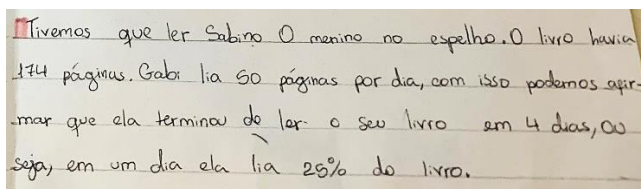 Tivemos que ler Sabino O menino no espelho. O livro havia
174 páginas. Gabi lia 50 páginas por dia, com isso podemos afir-
mar que ela terminou de ler o seu livro em 4 dias, ou
seja, em um dia ela lia 25% do livro.